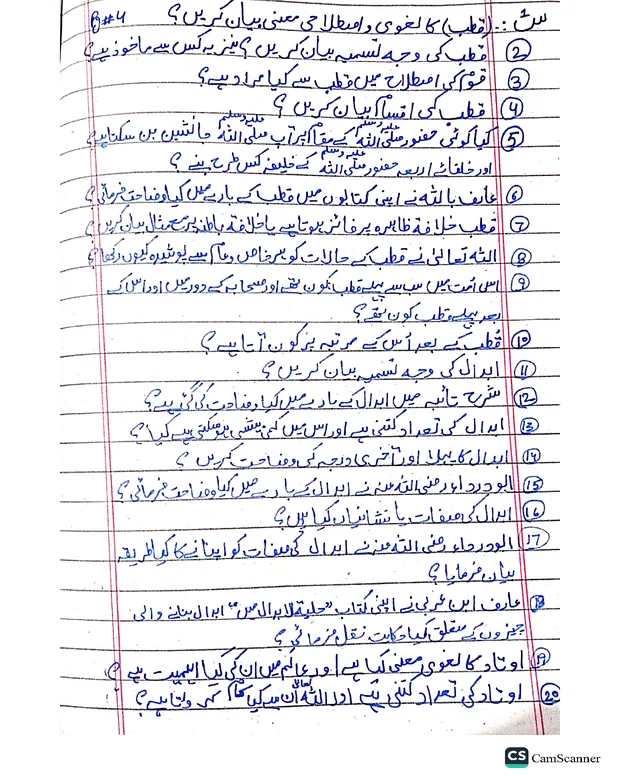 س1:۔ (قطب) کا لغوی و اصطلاحی معنی بیان کریں؟ P#4
② قطب کی وجہ تسمیہ بیان کریں؟ نیز یہ کس سے ماخوذ ہے؟
③ قوم کی اصطلاح میں قطب سے کیا مراد ہے؟
④ قطب کی اقسام بیان کریں؟
⑤ کیا کوئی حضور صلی اللہ علیہ وسلم کے مقام پر آپ صلی اللہ علیہ وسلم جانشین بن سکتا ہے؟
اور خلفائے اربعہ حضور صلی اللہ علیہ وسلم کے خلیفہ کس طرح بنے؟
⑥ عارف باللہ نے اپنی کتابوں میں قطب کے بارے میں کیا وضاحت فرمائی؟
⑦ قطب خلافۃ ظاہرہ پر فائز ہوتا ہے یا خلافۃ باطنہ پر مع مثال بیان کریں؟
⑧ اللہ تعالیٰ نے قطب کے حالات کو ہر خاص و عام سے پوشیدہ کیوں رکھا؟
⑨ اس امت میں سب سے پہلے قطب کون تھے اور صحابہ کے دور میں اور اس کے
بعد پہلے قطب کون تھے؟
⑩ قطب کے بعد اُس کے مرتبہ پر کون آتا ہے؟
⑪ ابدال کی وجہ تسمیہ بیان کریں؟
⑫ شرح تائیہ میں ابدال کے بارے میں کیا وضاحت کی گئی ہے؟
⑬ ابدال کی تعداد کتنی ہے اور اس میں کمی بیشی ہو سکتی ہے کیا؟
⑭ ابدال کا پہلا اور آخری درجہ کی وضاحت کریں؟
⑮ ابودرداء رضی اللہ عنہ نے ابدال کے بارے میں کیا وضاحت فرمائی؟
⑯ ابدال کی صفات یا نشانیاں کیا ہیں؟
⑰ ابودرداء رضی اللہ عنہ نے ابدال کی صفات کو اپنانے کا کیا طریقہ
بیان فرمایا؟
⑱ عارف ابن عربی نے اپنی کتاب "حلیۃ الابدال میں" ابدال بنانے والی
چیزوں کے متعلق کیا حکایت نقل فرمائی؟
⑲ اوتاد کا لغوی معنی کیا ہے اور عالم میں ان کی کیا اہمیت ہے؟
⑳ اوتاد کی تعداد کتنی ہے اور اللہ تعالیٰ ان سے کیا کام لیتا ہے؟
CS CamScanner